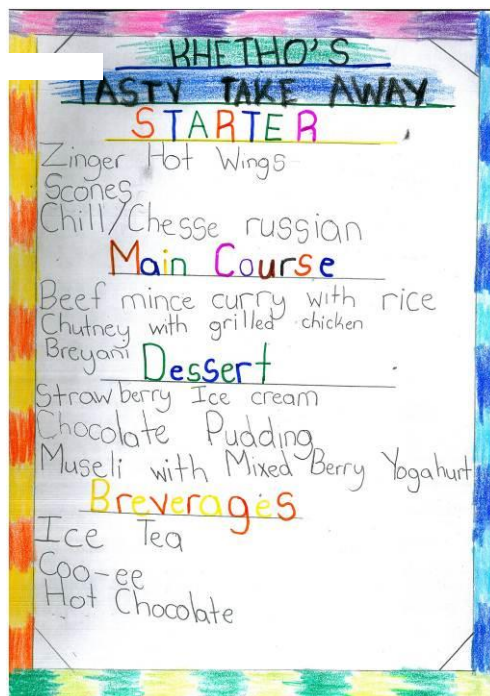 KHETHO'S
TASTY TAKE AWAY
STARTER
Zinger Hot Wings
Scones
Chill/Chesse russian
Main Course
Beef mince curry with rice
Chutney with grilled chicken
Breyani
Dessert
Strawberry Ice cream
Chocolate Pudding
Museli with Mixed Berry Yogahurt
Breverages
Ice Tea
Coo-ee
Hot Chocolate